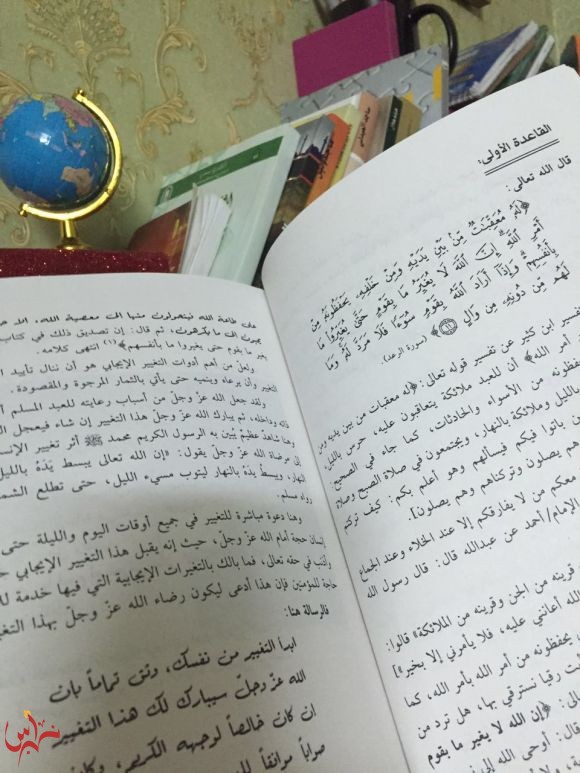 القاعدة الأولى:
قال الله تعالى:
﴿لَهُ مُعَقِّبَٰتٌ مِّنۢ بَيْنِ يَدَيْهِ وَمِنْ خَلْفِهِۦ يَحْفَظُونَهُۥ مِنْ
أَمْرِ ٱللَّهِ إِنَّ ٱللَّهَ لَا يُغَيِّرُ مَا بِقَوْمٍ حَتَّىٰ يُغَيِّرُوا۟ مَا
بِأَنفُسِهِمْ وَإِذَآ أَرَادَ ٱللَّهُ بِقَوْمٍ سُوٓءًا فَلَا مَرَدَّ لَهُۥ وَمَا
لَهُم مِّن دُونِهِۦ مِن وَالٍ ﴿١١﴾﴾ (سورة الرعد).
تفسير ابن كثير عن تفسير قوله تعالى: ﴿له معقبات من بين يديه ومن
أمر الله﴾ أن للعبد ملائكة يتعاقبون عليه، حرس بالليل
يحفظونه من الأسواء والحادثات، كما جاء في الصحيح:
الليل وملائكة بالنهار، ويجتمعون في صلاة الصبح وصلاة
باتوا فيكم فيسألهم وهو أعلم بكم: كيف تركتم
وهم يصلون وتركناهم وهم يصلون].
معكم من لا يفارقكم إلا عند الخلاء وعند الجماع
الإمام/ أحمد عن عبدالله قال: قال رسول الله
قرينه من الجن وقرينه من الملائكة» قالوا:
الله أعانني عليه، فلا يأمرني إلا بخير»]
يحفظونه من أمر الله بأمر الله، كما
رقيا نسترقي بها، هل ترد من
﴿إن الله لا يغير ما بقوم
قال: أوحى الله
طاعة الله فيتحولون منها إلى معصية الله، إلا
إلى ما يكرهون، ثم قال: إن تصديق ذلك في كتاب
يغير ما بقوم حتى يغيروا ما بأنفسهم﴾(١) انتهى كلامه.
ولعل من أهم أدوات التغيير الإيجابي هو أن ننال تأييد
التغيير وأن يرعاه وينميه حتى يأتي بالثمار المرجوة والمقصودة.
ولقد جعل الله عزّ وجلّ من أسباب رعايته للعبد المسلم
وداخله، ثم يبارك الله عزّ وجلّ هذا التغيير إن شاء فيعجل
وهنا شاهد عظيم يُبين به الرسول الكريم محمد ﷺ أثر تغيير
إلى مرضاة الله عزّ وجلّ يقول: «إن الله تعالى يبسط يَدَهُ بالليل
النهار، ويبسطُ يدهُ بالنهار ليتوب مسيء الليل، حتى تطلع
رواه مسلم.
وهنا دعوة مباشرة للتغيير في جميع أوقات اليوم والليلة حتى
إنسان حجة أمام الله عزّ وجلّ، حيث إنه يقبل هذا التغيير الإيجابي
وأذنب في حقه تعالى، فما بالك بالتغيرات الإيجابية التي فيها خدمة
حاجة للمؤمنين فإن هذا أدعى ليكون رضاء الله عزّ وجلّ بهذا
فالرسالة هنا:
ابدأ التغيير من نفسك، وثق تماماً بأن
الله عزّ وجلّ سيبارك لك هذا التغيير
إن كان خالصاً لوجهه الكريم، وكان
صواباً موافقاً